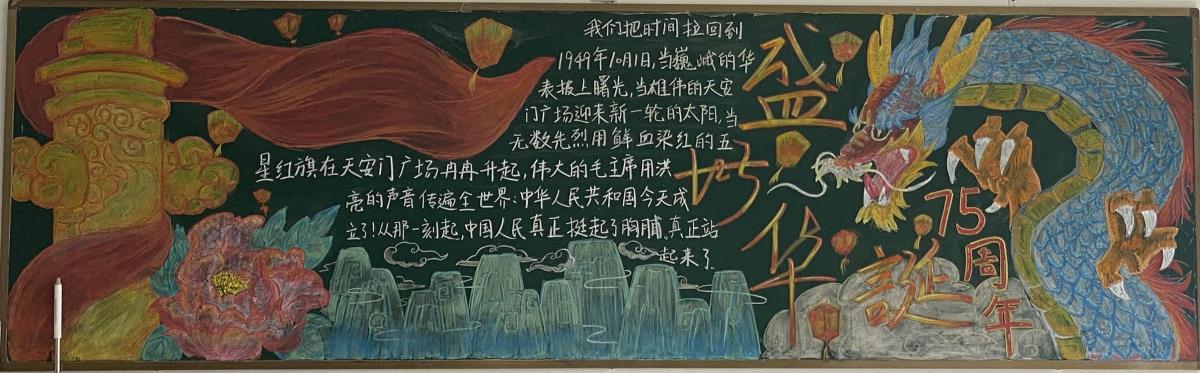 我们把时间拉回到
1949年10月1日,当巍峨的华
表披上曙光,当雄伟的天安
门广场迎来新一轮的太阳,当
无数先烈用鲜血染红的五
星红旗在天安门广场冉冉升起,伟大的毛主席用洪
亮的声音传遍全世界:中华人民共和国今天成
立了!从那一刻起,中国人民真正挺起了胸脯,真正站
起来了。
盛世华诞
75周年